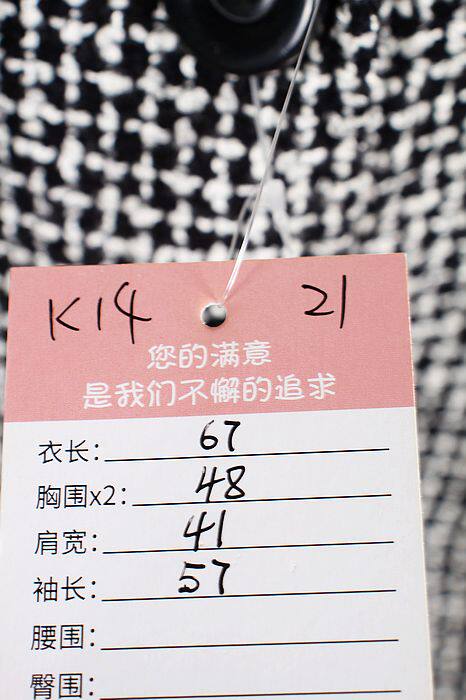 K14 21
您的满意
是我们不懈的追求
衣长：67
胸围x2：48
肩宽：41
袖长：57
腰围：
臀围：